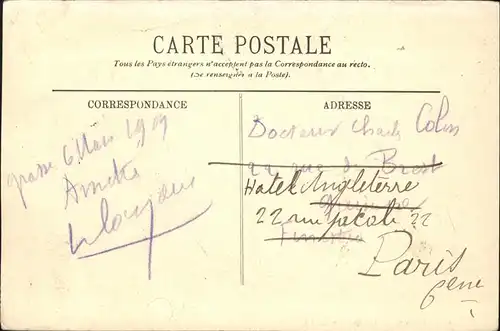 CARTE POSTALE
Tous les Pays étrangers n'acceptent pas la Correspondance au recto.
(Se renseigner à la Poste).
CORRESPONDANCE
ADRESSE
Grasse 6 Mai 1909
Docteur Charles Colin
22 rue de Brest
Hotel Angleterre
22 rue Jacob 22
Finistère
Paris
6eme